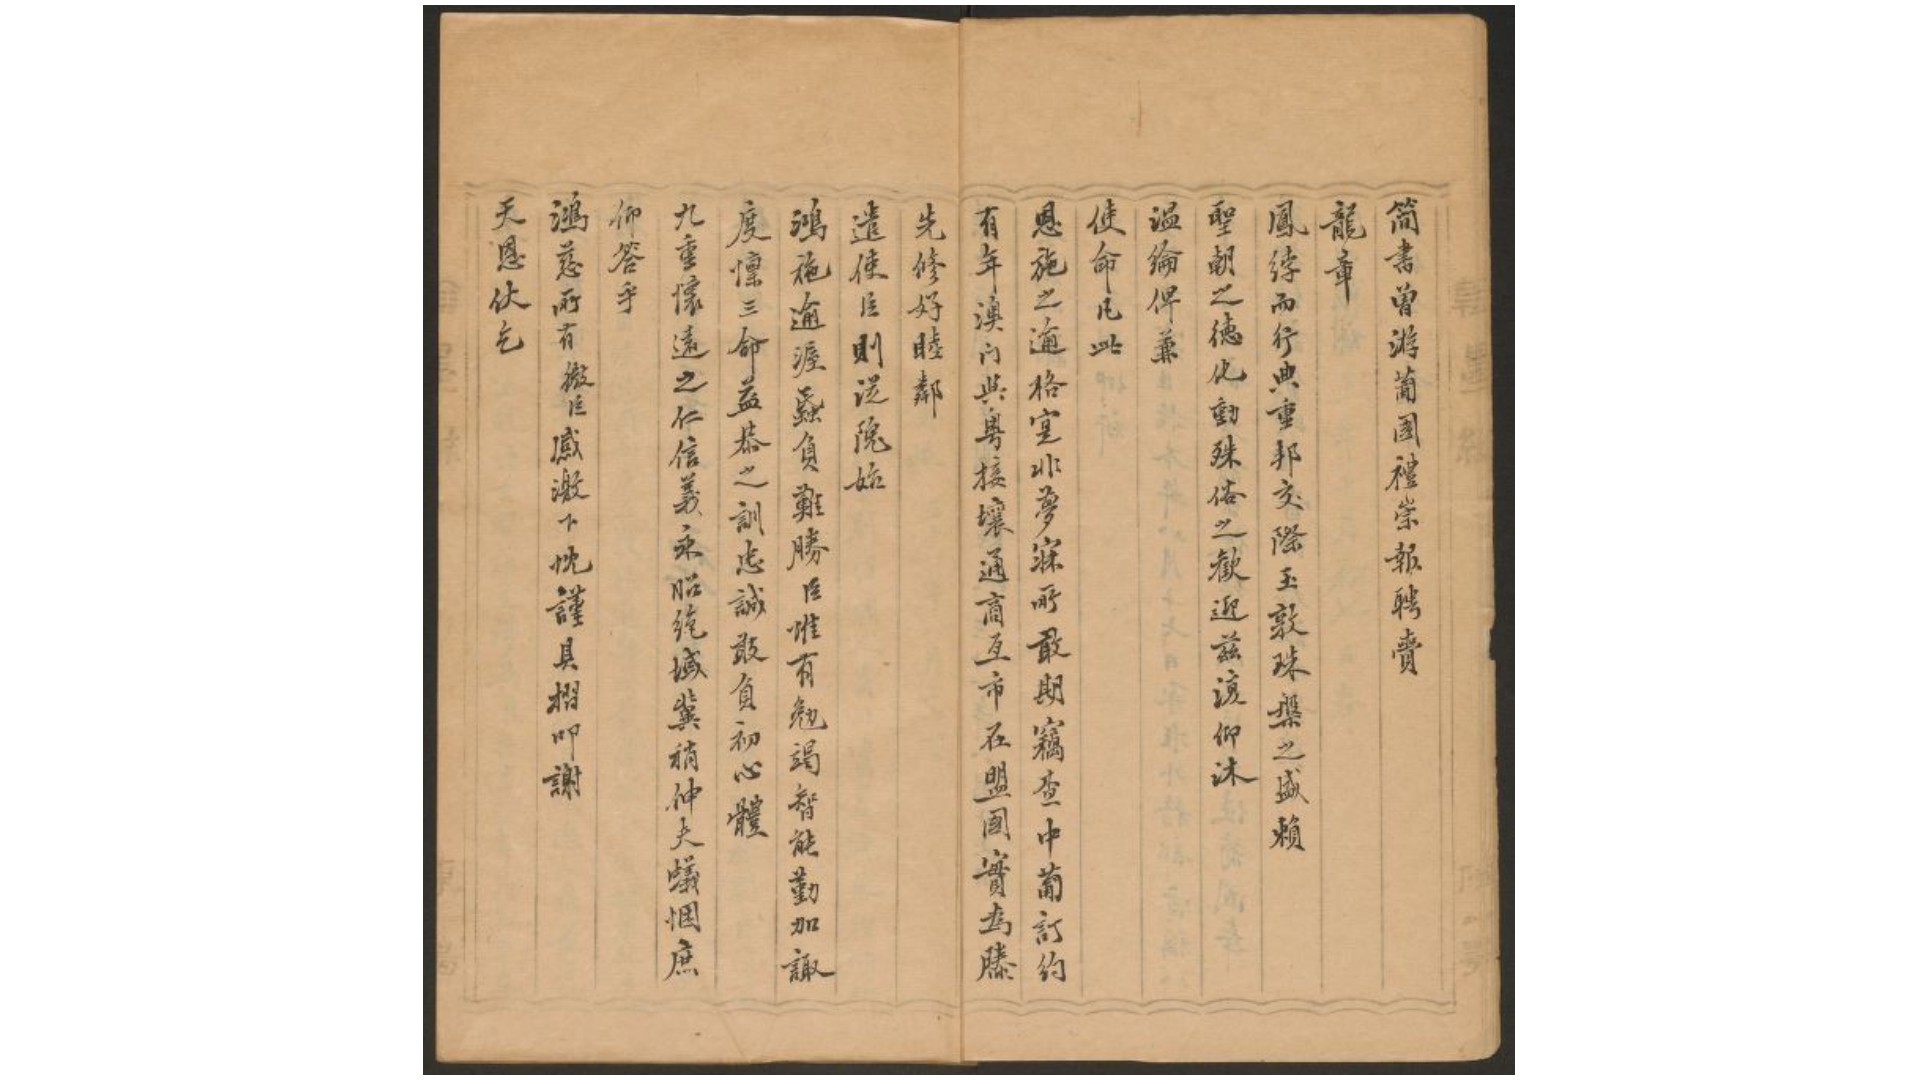 簡書曾游葡國禮崇報聘賷
龍章
鳳綍而行典重邦交際玉敦珠槃之盛賴
聖朝之德化動殊俗之歡迎茲復仰沐
溫綸俾兼
使命凡此
恩施之逾格寔非夢寐所敢期竊查中葡訂約
有年澳门與粤接壤通商互市在盟國實為滕
先修好睦鄰
遣使臣則從隗始
鴻施逾渥蚉負難勝臣惟有勉竭智能勤加諏
度懍三命益恭之訓忠誠敢負初心體
九重懷遠之仁信義永昭絶域冀稍伸夫蟻悃庶
仰答乎
鴻慈所有微臣感激下忱謹具摺叩謝
天恩伏乞